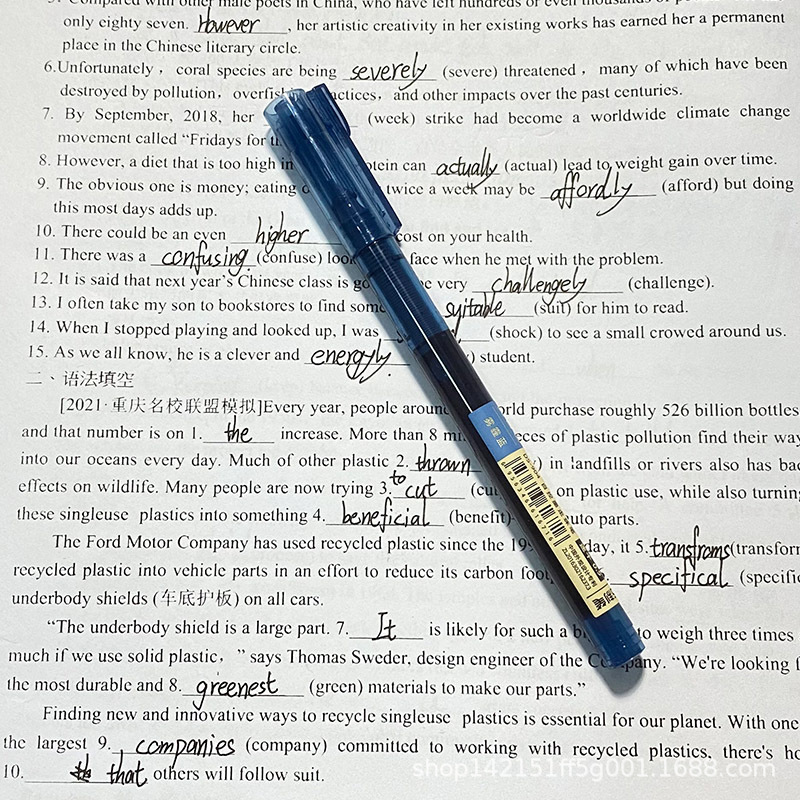 5. Compared with other male poets in China, who have left hundreds or even thousands of
only eighty seven. However , her artistic creativity in her existing works has earned her a permanent
place in the Chinese literary circle.
6.Unfortunately , coral species are being severely (severe) threatened , many of which have been
destroyed by pollution, actices, and other impacts over the past centuries.
7. By September, 2018, her (week) strike had become a worldwide climate change
movement called “Fridays for
8. However, a diet that is too high in otein can actually (actual) lead to weight gain over time.
9. The obvious one is money; eating twice a week may be affordly (afford) but doing
this most days adds up.
10. There could be an even higher cost on your health.
11. There was a confusing (confuse) loo face when he met with the problem.
12. It is said that next year's Chinese class is go e very challengely (challenge).
13. I often take my son to bookstores to find som suitable (suit) for him to read.
14. When I stopped playing and looked up, I was (shock) to see a small crowed around us.
15. As we all know, he is a clever and energyly ) student.
二、语法填空
[2021·重庆名校联盟模拟]Every year, people aroun orld purchase roughly 526 billion bottles
and that number is on 1. the increase. More than 8 mi eces of plastic pollution find their way
into our oceans every day. Much of other plastic 2. thrown ) in landfills or rivers also has bad
effects on wildlife. Many people are now trying 3. to cut (cu on plastic use, while also turning
these singleuse plastics into something 4. beneficial (benefit) auto parts.
The Ford Motor Company has used recycled plastic since the 199 day, it 5. transfroms (transform
recycled plastic into vehicle parts in an effort to reduce its carbon foot specifical (specific
underbody shields (车底护板) on all cars.
“The underbody shield is a large part. 7. It is likely for such a b to weigh three times
much if we use solid plastic, ” says Thomas Sweder, design engineer of the Company. “We're looking f
the most durable and 8. greenest (green) materials to make our parts.”
Finding new and innovative ways to recycle singleuse plastics is essential for our planet. With one
the largest 9. companies (company) committed to working with recycled plastics, there's ho
10. that others will follow suit.
shop142151ff5g001.1688.com